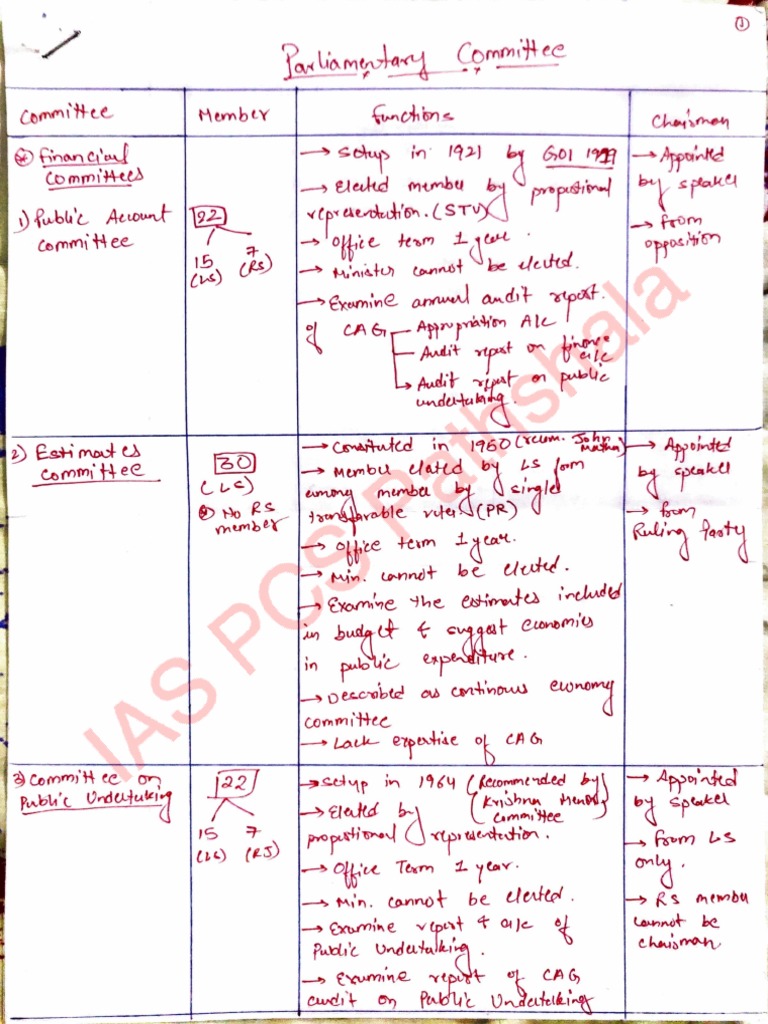 ①
Parliamentary Committee
Committee
Member
functions
Chairman
⊛ Financial
Committees
1) Public Account
Committee
22
15 7
(LS) (RS)
→ Setup in 1921 by GOI
→ Elected member by propostional
representation. (STV)
→ Office term 1 year.
→ Minister cannot be elected.
→ Examine annual audit report.
of CAG — Appropriation A/c
— Audit report on finance a/c
→ Audit report on public
undertaking.
→ Appointed
by speaker
→ from
opposition
2) Estimates
Committee
30
(LS)
⊛ No RS
member
→ Constituted in 1950 (recom. John
Mathai)
→ Member elated by LS form
among member by single
transfarable voter (PR)
→ Office term 1 year.
→ Min. cannot be elected.
→ Examine the estimates included
in budget & suggest economies
in public expenditure.
→ Described as continous ewnomy
committee
→ Lack expertise of CAG
→ Appointed
by speaker
→ from
Ruling Party
3) Committee on
Public Undertaking
22
15 7
(LS) (RS)
→ Setup in 1964 (Recommended by
Krishna Menon
committee)
→ Elected by
propostional representation.
→ Office Term 1 year.
→ Min. cannot be elected.
→ Examine report & a/c of
Public Undertalking.
→ Examine report of CAG
audit on Public Undertaking
→ Appointed
by speaker
→ from LS
only.
→ RS member
cannot be
chairman
IAS PCS Pathshala